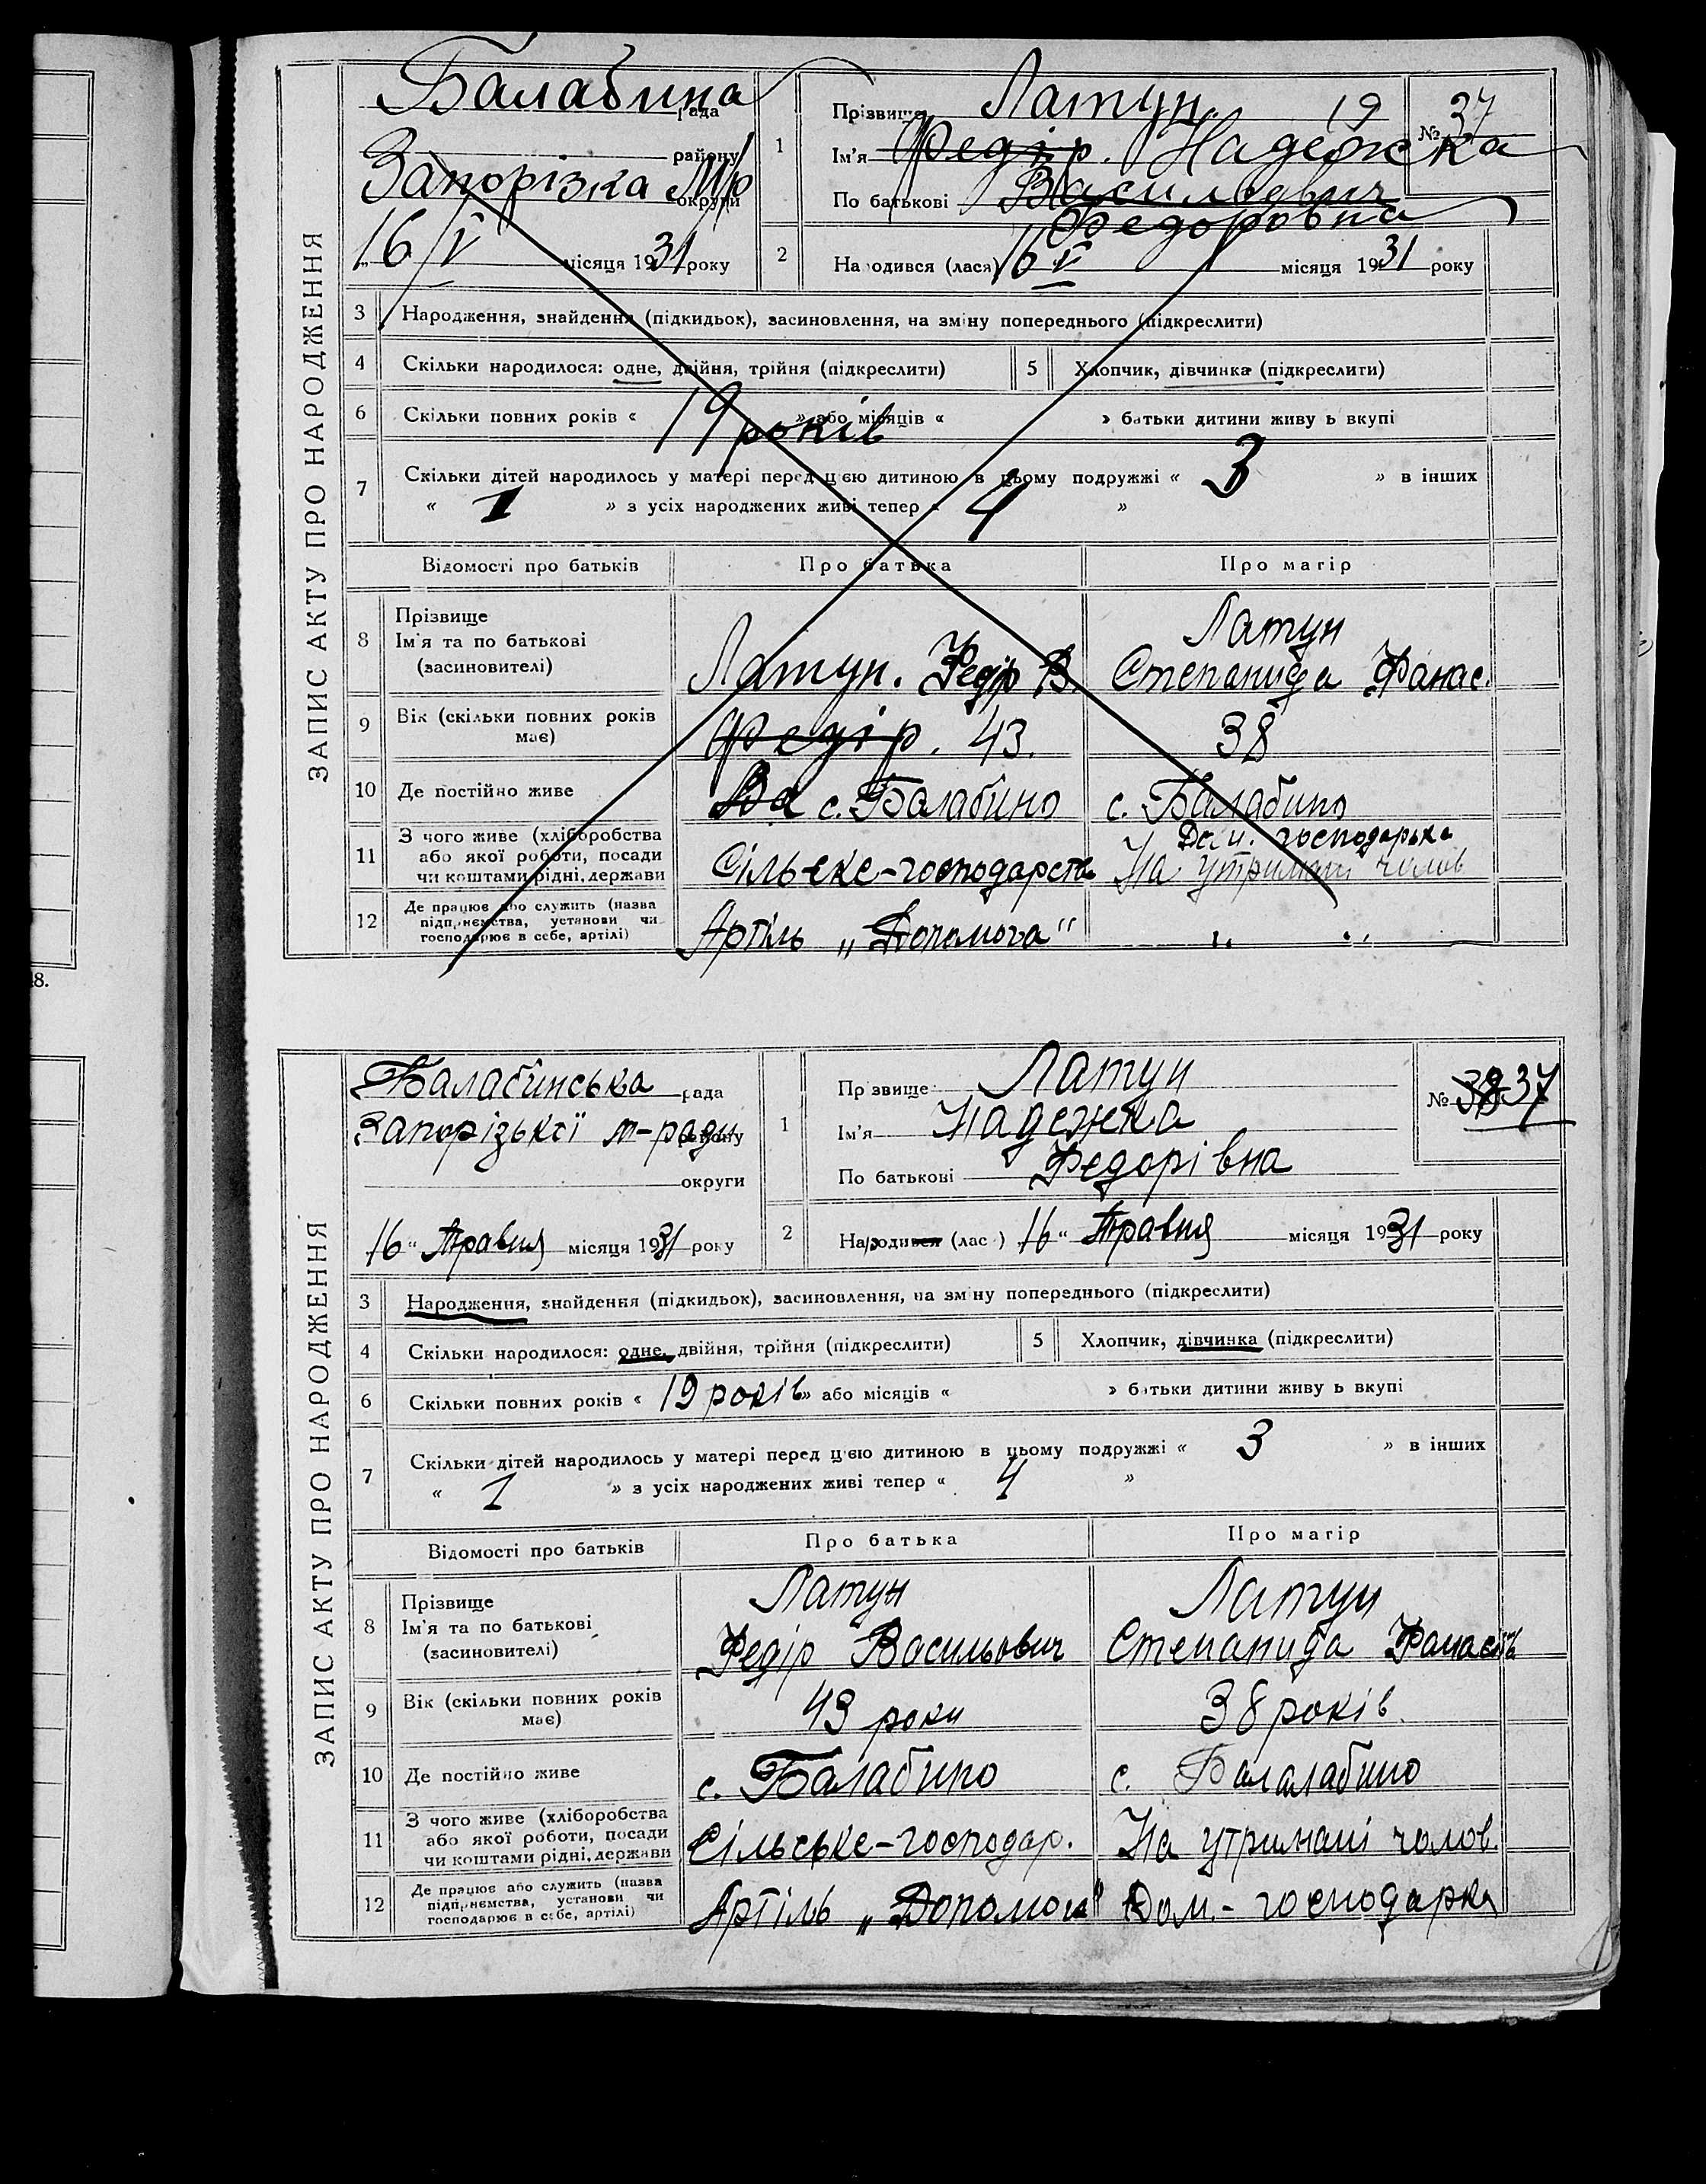 ЗАПИС АКТУ ПРО НАРОДЖЕННЯ
Балабина рада
району
Запорізка М/р округи
16/V місяця 1931 року
1 Прізвище Латун. 19 № 37
Ім'я Федір. Надежка
По батькові Васильевич
Федоровна
2 Народився (лася) 16 V місяця 1931 року
3 Народження, знайдення (підкидьок), засиновлення, на зміну попереднього (підкреслити)
4 Скільки народилося: одне, двійня, трійня (підкреслити) 5 Хлопчик, дівчинка (підкреслити)
6 Скільки повних років « 19 років » або місяців « » батьки дитини живуть вкупі
7 Скільки дітей народилось у матері перед цією дитиною в цьому подружжі « 3 » в інших
« 1 » з усіх народжених живі тепер « 4 »
Відомості про батьків Про батька Про матір
8 Прізвище Ім'я та по батькові (засиновителі) Латун. Федір В. Латун Степанида Фанас.
9 Вік (скільки повних років має) Федір. 43. 38
10 Де постійно живе Ва с. Балабино с. Балабино
11 З чого живе (хліборобства або якої роботи, посади чи коштами рідні, держави Сільске-господарств Дом. господарька На утримані чолов
12 Де працює або служить (назва підприємства, установи чи господарює в себе, артілі) Артіль „Допомога“ " "
48.
ЗАПИС АКТУ ПРО НАРОДЖЕННЯ
Балабінська рада
Запорізької м-ради району
округи
16 " Травня місяця 1931 року
1 Прізвище Латун № 38 37
Ім'я Надежка
По батькові Федорівна
2 Народився (лась) 16 " Травня місяця 1931 року
3 Народження, знайдення (підкидьок), засиновлення, на зміну попереднього (підкреслити)
4 Скільки народилося: одне, двійня, трійня (підкреслити) 5 Хлопчик, дівчинка (підкреслити)
6 Скільки повних років « 19 років » або місяців « » батьки дитини живуть вкупі
7 Скільки дітей народилось у матері перед цією дитиною в цьому подружжі « 3 » в інших
« 1 » з усіх народжених живі тепер « 4 »
Відомості про батьків Про батька Про матір
8 Прізвище Ім'я та по батькові (засиновителі) Латун Федір Васильович Латун Степанида
9 Вік (скільки повних років має) 43 роки 38 років.
10 Де постійно живе с. Балабино с. Балалабино
11 З чого живе (хліборобства або якої роботи, посади чи коштами рідні, держави Сільське-господар. На утримані чолов.
12 Де працює або служить (назва підприємства, установи чи господарює в себе, артілі) Артіль „Допомога" Дом.-господарка